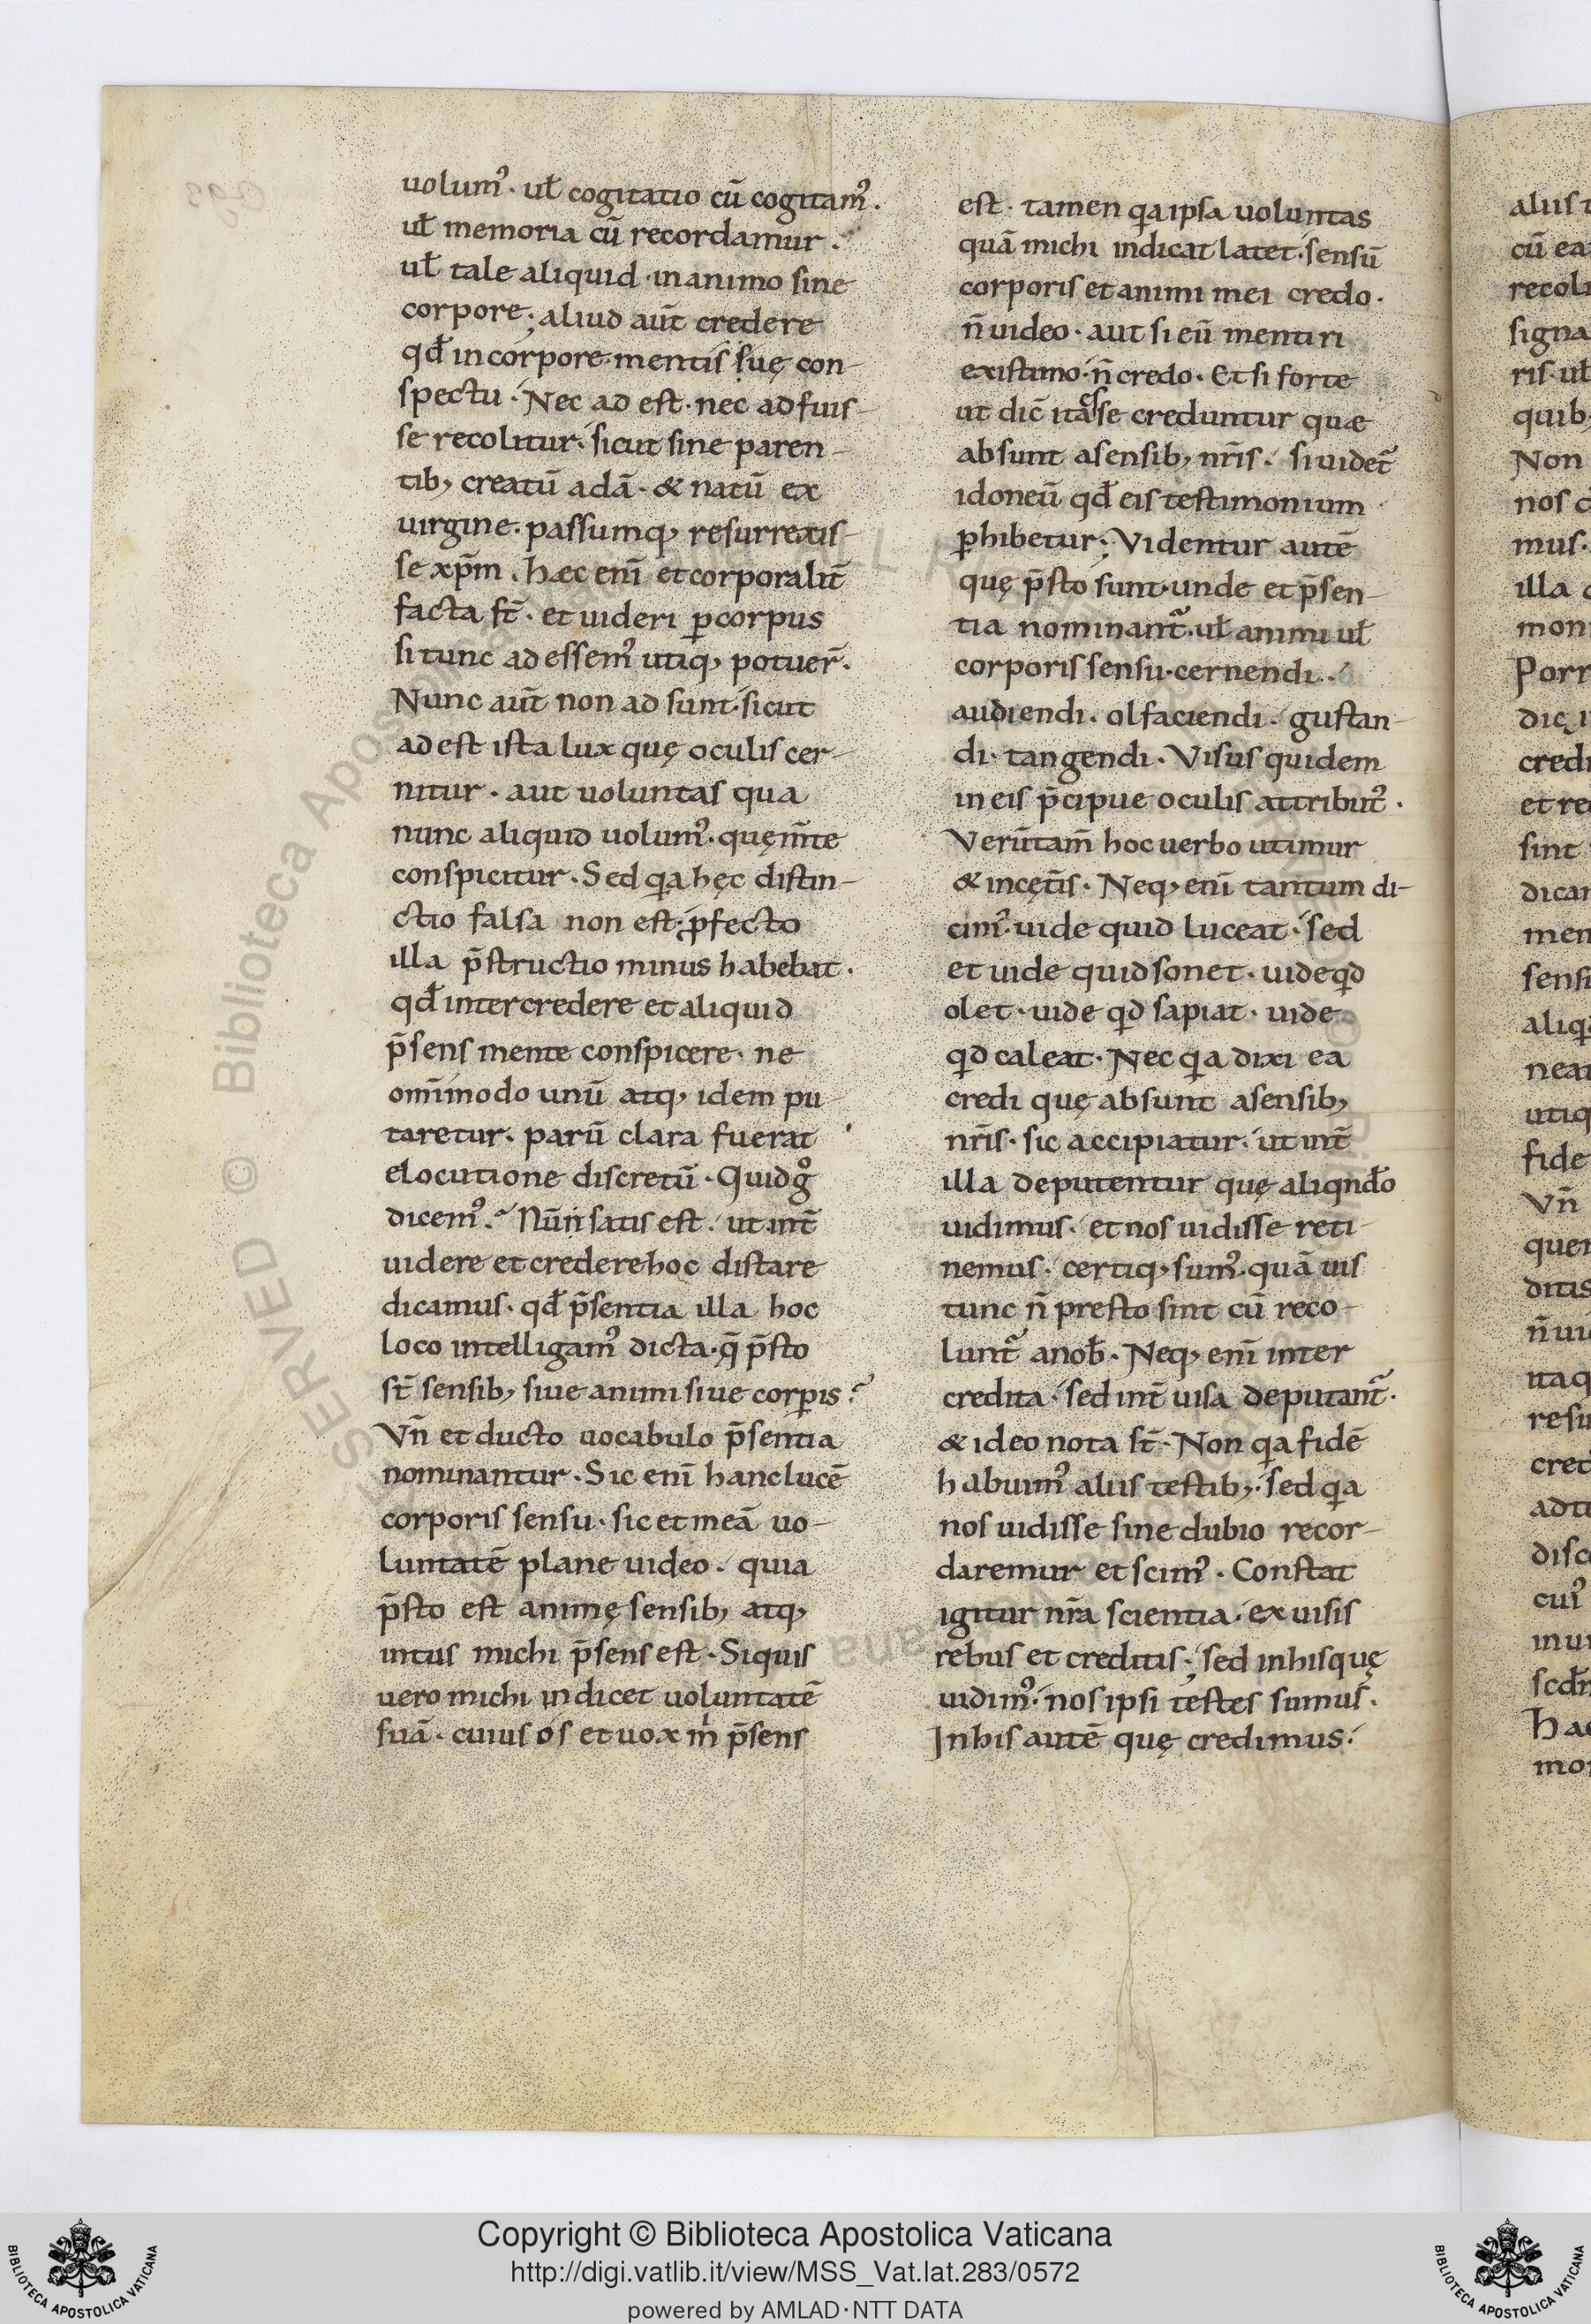 uolumꝰ· ul̄ cogitatio cū cogitamꝰ.
ul̄ memoria cū recordamur.
ul̄ tale aliquid inanimo sine
corpore; aliud aut̄ credere
qd̄ incorpore mentis suę con-
spectu· Nec ad est· nec adfuis-
se recolitur· sicut sine paren-
tibꝫ creatū adā· & natū ex
uirgine· passumqꝫ resurrexis-
se xp̄m· hæc enī et corporalit̄
facta st̄· et uideri ꝑcorpus
si tunc adessemꝰ utiqꝫ potuer̄·
Nunc aut̄ non ad sunt· sicut
adest ista lux quę oculis cer-
nitur· aut uoluntas qua
nunc aliquid uolumꝰ· quęm̄te
conspicitur· Sed qa hęc distin-
ctio falsa non est· ꝓfecto
illa p̄structio minus habebat·
qd̄ inter credere et aliquid
p̄sens mente conspicere· ne
om̄imodo unū atqꝫ idem pu-
taretur· parū clara fuerat
elocutione discretū· Quid gͦ
dicemꝰ? Nūn satis est· ut int̄
uidere et credere hoc distare
dicamus· qd̄ p̄sentia illa hoc
loco intelligamꝰ dicta· q̄ p̄sto
st̄ sensibꝫ siue animi siue corꝑis?
Vn̄ et ducto uocabulo p̄sentia
nominantur· Sic enī hanc lucē
corporis sensu· sic et meā uo-
luntatē plane uideo· quia
p̄sto est animę sensibꝫ atqꝫ
intus michi p̄sens est· Siquis
uero michi indicet uoluntatē
suā· cuius os et uox m̍ p̄sens
est· tamen qa ipsa uoluntas
quā michi indicat latet· sensū
corporis et animi mei credo·
n̄ uideo· aut si eū mentiri
existimo· n̄ credo· Et si forte
ut dic̄ ita esse creduntur quæ
absunt asensibꝫ nr̄is· si uidet᷑
idoneū qd̄ eis testimonium
ꝑhibetur; Videntur autē
quę p̄sto sunt· unde et p̄sen-
tia nominant᷑· ul̄ animi ul̄
corporis sensu· cernendi·
audiendi· olfaciendi· gustan-
di· tangendi· Visus quidem
in eis p̄cipue oculis attribuit᷑·
Verūtam̄ hoc uerbo utimur
& incęt̄is· Neqꝫ enī tantum di-
cimꝰ· uide quid luceat· sed
et uide quid sonet· uide qd
olet· uide qd sapiat· uide
qd caleat· Nec qa dixi ea
credi quę absunt asensibꝫ
nr̄is· sic accipiatur· ut int̄
illa deputentur quę aliqnd̄o
uidimus· et nos uidisse reti-
nemus· certiqꝫ sumꝰ· quā uis
tunc n̄ presto sint cū reco-
lunt᷑ anob̄· Neqꝫ enī inter
credita· sed int̄ uisa deputant᷑·
& ideo nota st̄· Non qa fidē
habuimꝰ aliis testibꝫ· sed qa
nos uidisse sine dubio recor-
daremur et scimꝰ· Constat
igitur nr̄a scientia· ex uisis
rebus et creditis; sed inhis quę
uidimꝰ· nos ipsi testes sumus·
Inhis autē quę credimus·
Copyright © Biblioteca Apostolica Vaticana
http://digi.vatlib.it/view/MSS_Vat.lat.283/0572
powered by AMLAD·NTT DATA